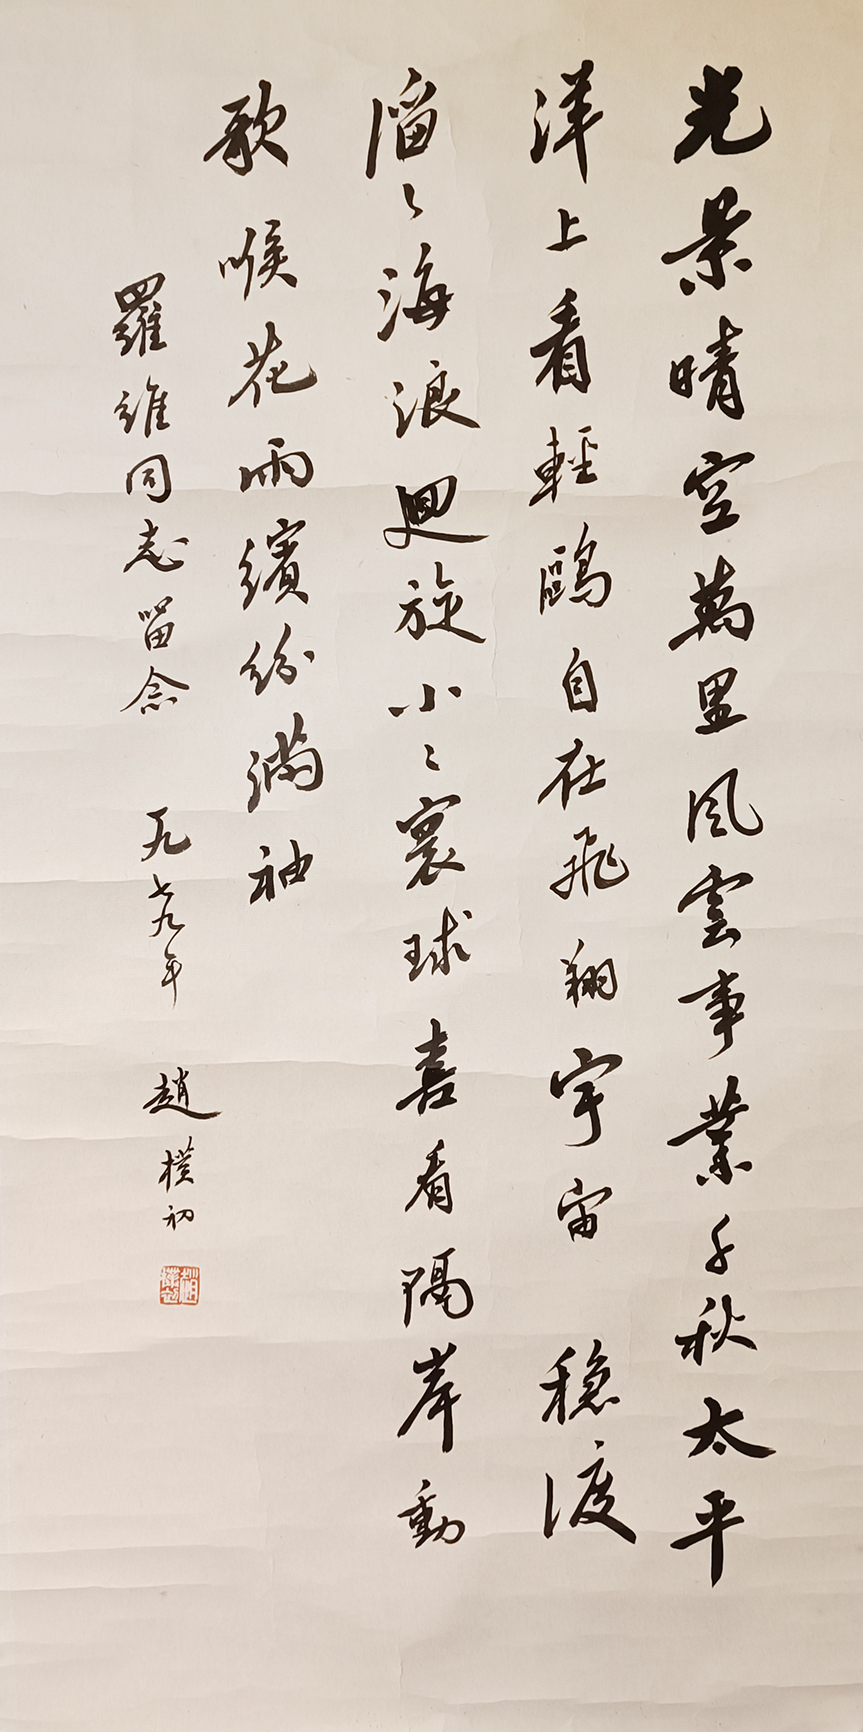 光景晴空萬里風雲事業千秋太平
洋上看輕鷗自在飛翔宇宙 穩渡
滔〻海浪迴旋小〻寰球喜看隔岸動
歌喉花雨繽紛滿袖
羅維同志留念 一九七九年 趙樸初
趙樸初